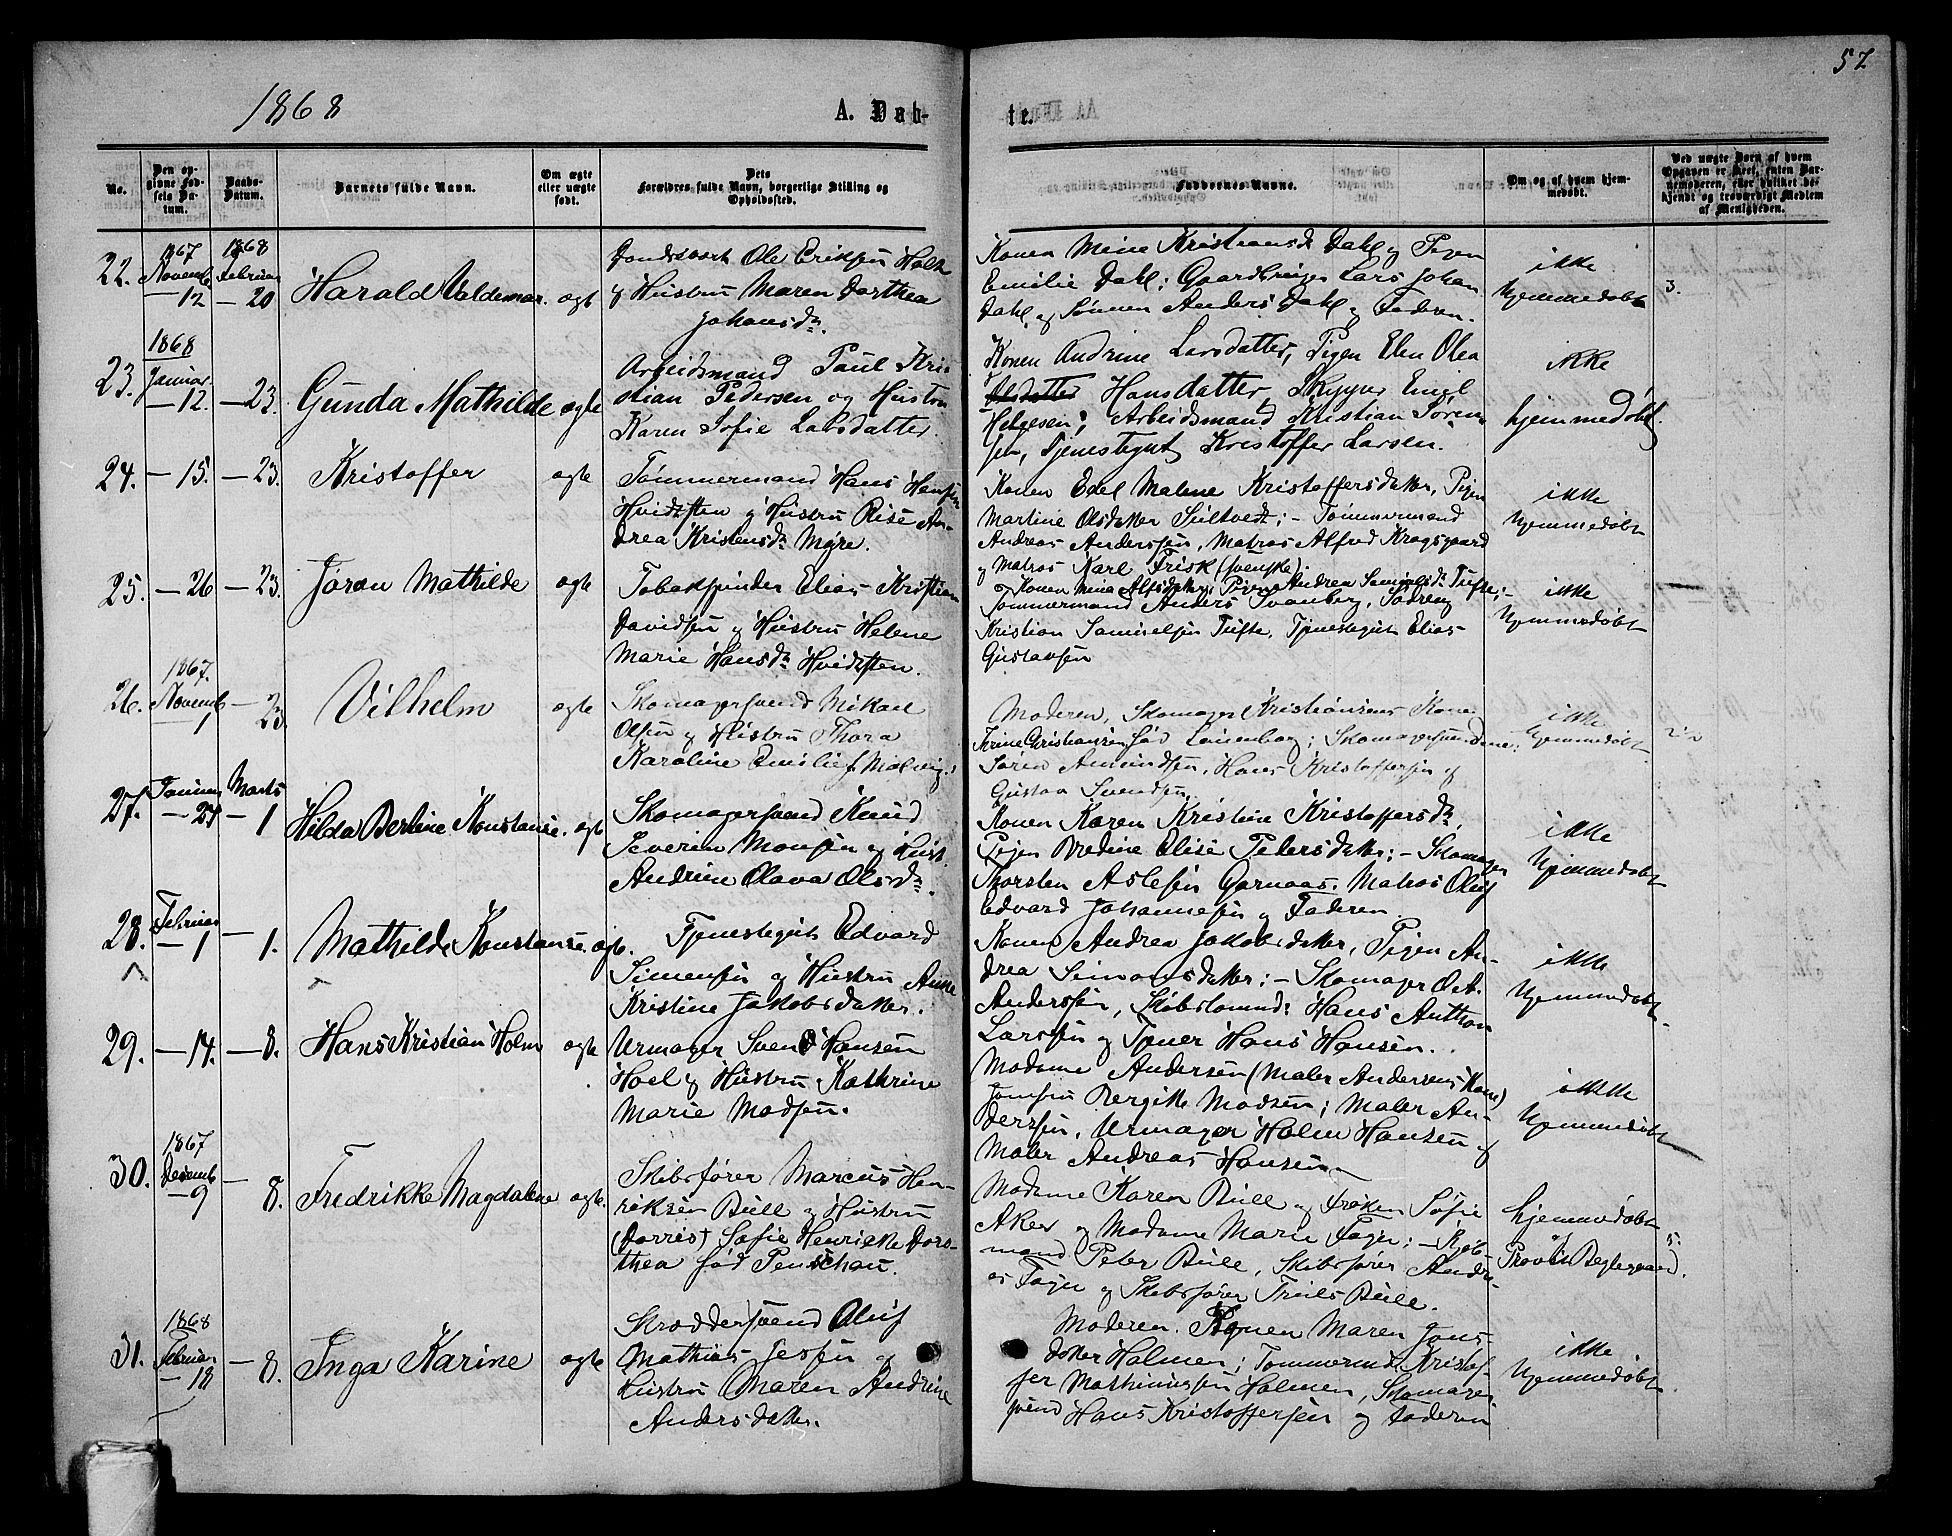 57
1868
A. Døb-
te.
No.
Den opgivne Fødsels Datum.
Daabs-Datum.
Barnets fulde Navn.
Om ægte eller uægte født.
Dets Forældres fulde Navn, borgerlige Stilling og Opholdssted.
Faddernes Navne.
Om og af hvem hjemmedøbt.
Ved uægte Børn af hvem Opgaven er skeet, enten Barnemoderen, eller hvilket bekjendt og troværdigt Medlem af Menigheden.
22.
1867
Novemb
— 12
1868
Februar
— 20
Harald Valdemar.
ægte
Ole Eriksen Holt
og Hustru Maren Dorthea
Johansdr.
Konen Mine Kristiansdr Dahl og Pigen
Emilie Dahl; Gaardbruger Lars Johan
Dahl og Sønnen Anders Dahl og Faderen.
ikke
hjemmedøbt
3.
23.
1868
Januar
— 12.
— 23.
Gunda Mathilde
ægte
Arbeidsmand Paul Kri-
stian Pedersen og Hustru
Karen Sofie Larsdatter.
Konen Andrine Larsdatter, Pigen Elen Olea
Olsdatter Hansdatter, Skipper Engl
Helgesen; Arbeidsmand Kristian Søren-
sen, Tjenestegut Kristoffer Larsen.
ikke
hjemmedøbt.
24.
— 15.
— 23.
Kristoffer
ægte
Tømmermand Hans Hansen
Hvidsten og Hustru Rise An-
drea Kristensdr Myre.
Konen Edel Malene Kristoffersdatter, Pigen
Martine Olsdatter Siltvedt; — Tømmermand
Andreas Anderssen, Matros Alfred Kragsgaard
og Matros Karl Frisk (svenske).
ikke
hjemmedøbt
25.
— 26
— 23.
Jøran Mathilde
ægte
Tobakspinder Elias Kristian
Davidsen og Hustru Helene
Marie Hansdr Hvidsten.
Konen Mina Alfsdatter, Pigen Andrea Samuelsdr Tufte; —
Tømmermand Anders Svanberg,
Kristian Samuelsen Tufte, Tjenestegut Elias
Gustavsen
ikke
hjemmedøbt
26.
1867.
Novemb
1
— 23.
Vilhelm
ægte
Skomagersvend Mikael
Olsen og Hustru Thora
Karoline Emilie f.
Moderen, Skomager Kristiansens Kone
Trine Christiansen fød; Skomagersvendene:
Søren Amundsen, Hans Kristoffersen og
Gustav Svendsen.
ikke
hjemmedøbt
27.
Januar
— 24
Marts
— 1
Hilda Bertine Konstanse.
ægte
Skomagersvend Knud
Severin Monsen og Hust.
Andrine Olava Olsdr.
Konen Karen Kristine Kristoffersdr,
Pigen Bredine Elise Pedersdatter; — Skomager
Thorsten Aslesen Garnaas. Matros Oluf
Edvard Johannesen og Faderen.
ikke
hjemmedøbt
28.
Februar
— 1
— 1.
Mathilde Konstanse.
ægte.
Tjenestegut Edvard
Simensen og Hustru Anne
Kristine Jakobsdatter.
Konen Andrea Jakobsdatter, Pigen An-
drea Simonsdatter; — Skomager Ost.
Anderssen, Skibstømmd: Hans Anthon
Larssen og Tjener Hans Hansen.
ikke
hjemmedøbt.
29.
— 14.
— 8.
Hans Kristian Holm
ægte
Urmager Svend Hansen
Hoel og Hustru Kathrine
Marie Madsen.
Madame Andersen (Maler Andersens Kone)
Jomfru Bergitte Madsen; Maler An-
derssen, Urmager Holm Hansen og
Maler Andreas Hansen.
ikke
hjemmedøbt
30.
1867
Decemb
— 9
— 8.
Fredrikke Magdalene
ægte.
Skibsfører Marcus Hen-
riksen Bull og Hustru
(Dorris) Sofie Henriette Doro-
thea fød Penschau.
Madame Karen Bull og Frøken Sofie
Aker og Madame Marie Fager; — Kjøb-
mand Peter Bull, Skibsfører Andre-
as Fager og Skibsfører Truls Bull.
hjemmedøbt
af
Provst Reglegaard.
5.
31.
1868
Februar
— 18
— 8.
Inga Karine
ægte
Skræddersvend Oluf
Mathias Jessen og
Hustru Maren Andrine
Andersdatter.
Moderen. Pigen Maren Jons-
datter Holmen; Tømmermd: Kristof-
fer Mathinussen Holmen, Skomager-
svend Hans Kristoffersen og Faderen
ikke
hjemmedøbt.